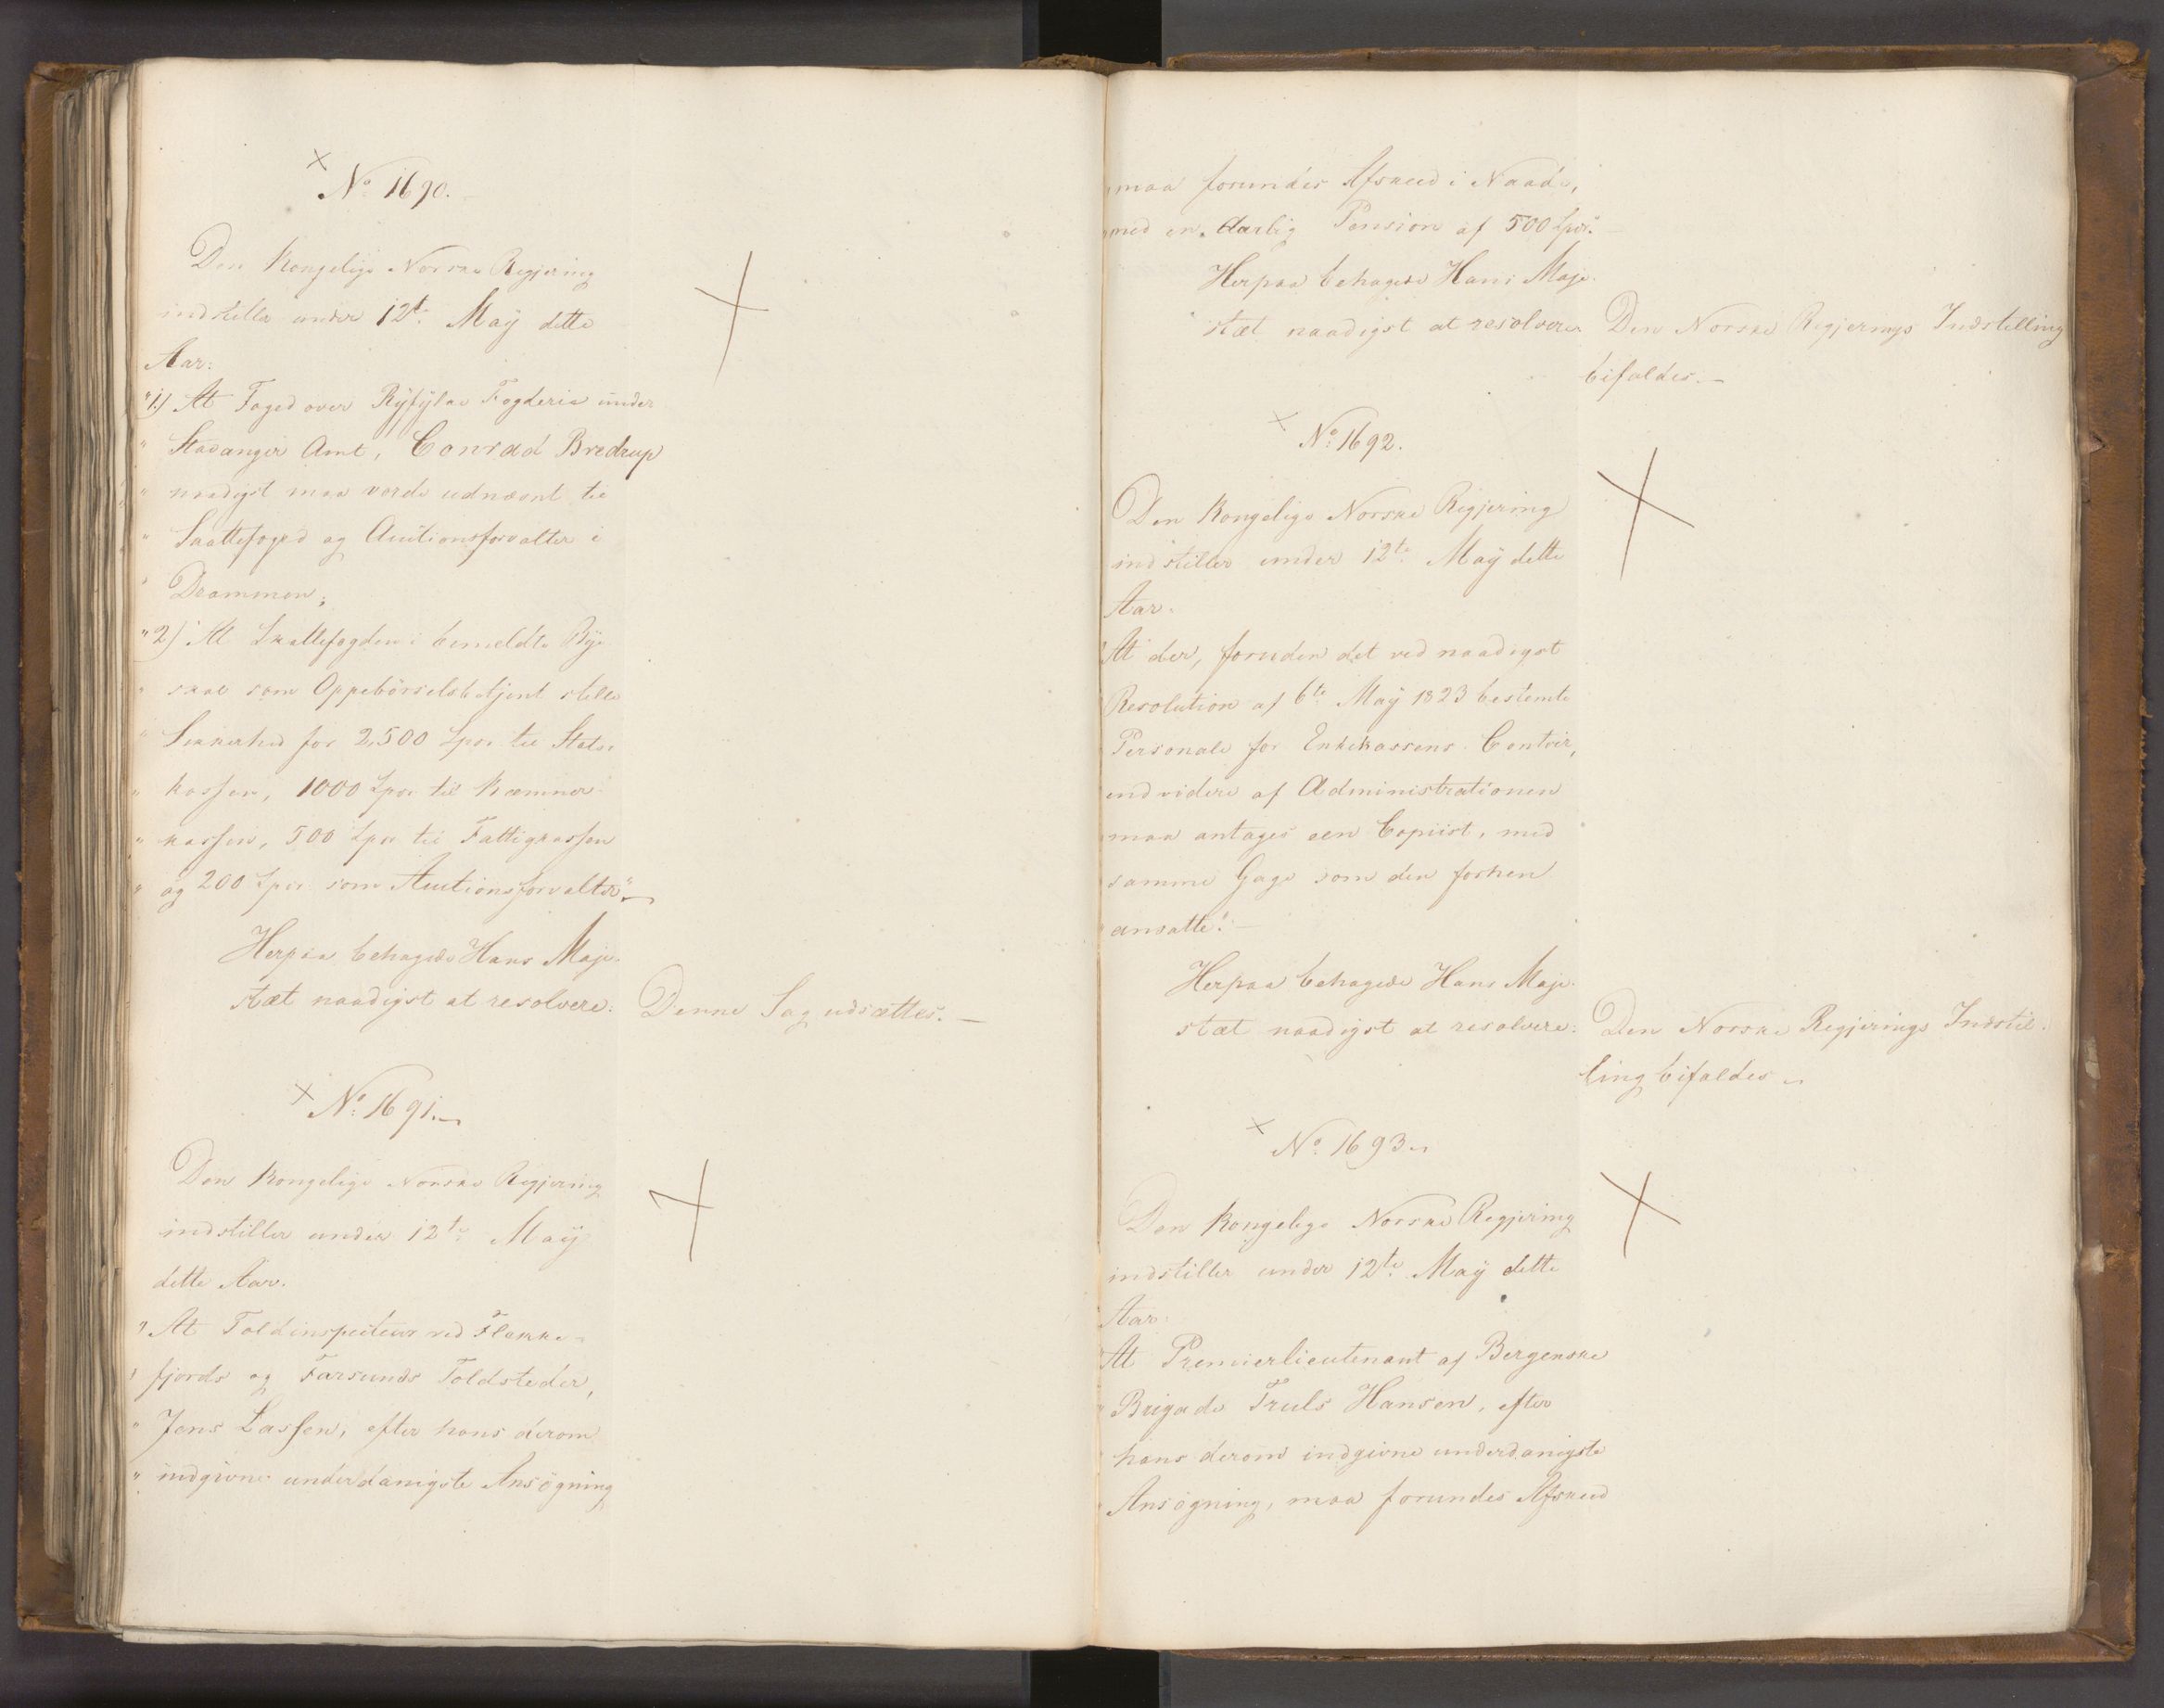 No 1690.
Den Kongelige Norske Regjering
indstiller under 12te May dette
Aar:
"1) At Foged over Ryfylke Fogderie under
" Stavanger Amt, Conrad Bredrup
" naadigst maa vorde udnævnt til
" Skattefoged og Auctionsforvalter i
" Drammen;
"2) At Skattefogden i bemeldte Bye
" skal som Oppebörselsbetjent stille
" Sikkerhed for 2,500 Spd. til Stats-
" kassen, 1000 Spd. til Kæmner-
" kassen, 500 Spd. til Fattigkassen
" og 200 Spd. som Auctionsforvalter".
Herpaa behagede Hans Maje-
stæt naadigst at resolvere:
Denne Sag udsættes. —
No 1691.
Den Kongelige Norske Regjering
indstiller under 12te May
dette Aar.
" At Toldinspecteur ved Flekke-
" fjords og Farsunds Toldsteder,
" Jens Lassen, efter hans derom
" indgivne underdanigste Ansögning
" maa forundes Afskeed i Naade,
" med en aarlig Pension af 500 Spd."
Herpaa behagede Hans Maje-
stæt naadigst at resolvere
Den Norske Regjerings Indstilling
bifaldes. —
No 1692.
Den Kongelige Norske Regjering
indstiller under 12te May dette
Aar.
"At der, foruden det ved naadigst
Resolution af 6te May 1823 bestemte
Personale for Enkekassens Contoir,
endvidere af Administrationen
maa antages een Copiist, med
samme Gage som den forhen
ansatte." —
Herpaa behagede Hans Maje-
stæt naadigst at resolvere:
Den Norske Regjerings Indstil-
ling bifaldes.
No 1693.
Den Kongelige Norske Regjering
indstiller under 12te May dette
Aar:
"At Premierlieutenant af Bergenske
" Brigade Truls Hansen, efter
" hans derom indgivne underdanigste
" Ansögning, maa forundes Afskeed